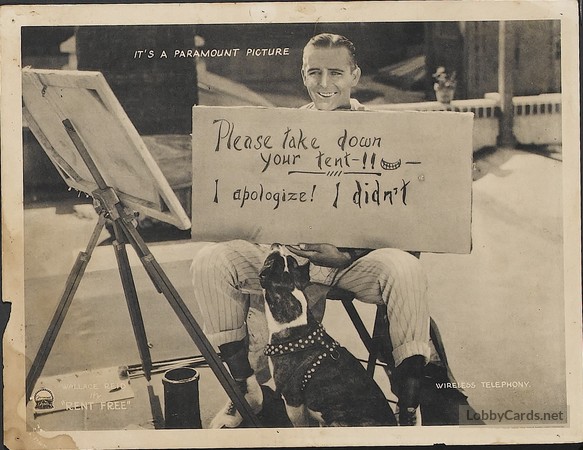 IT'S A PARAMOUNT PICTURE
Please take down
your tent-!!
I apologize! I didn't
WALLACE REID
IN
"RENT FREE"
WIRELESS TELEPHONY
LobbyCards.net